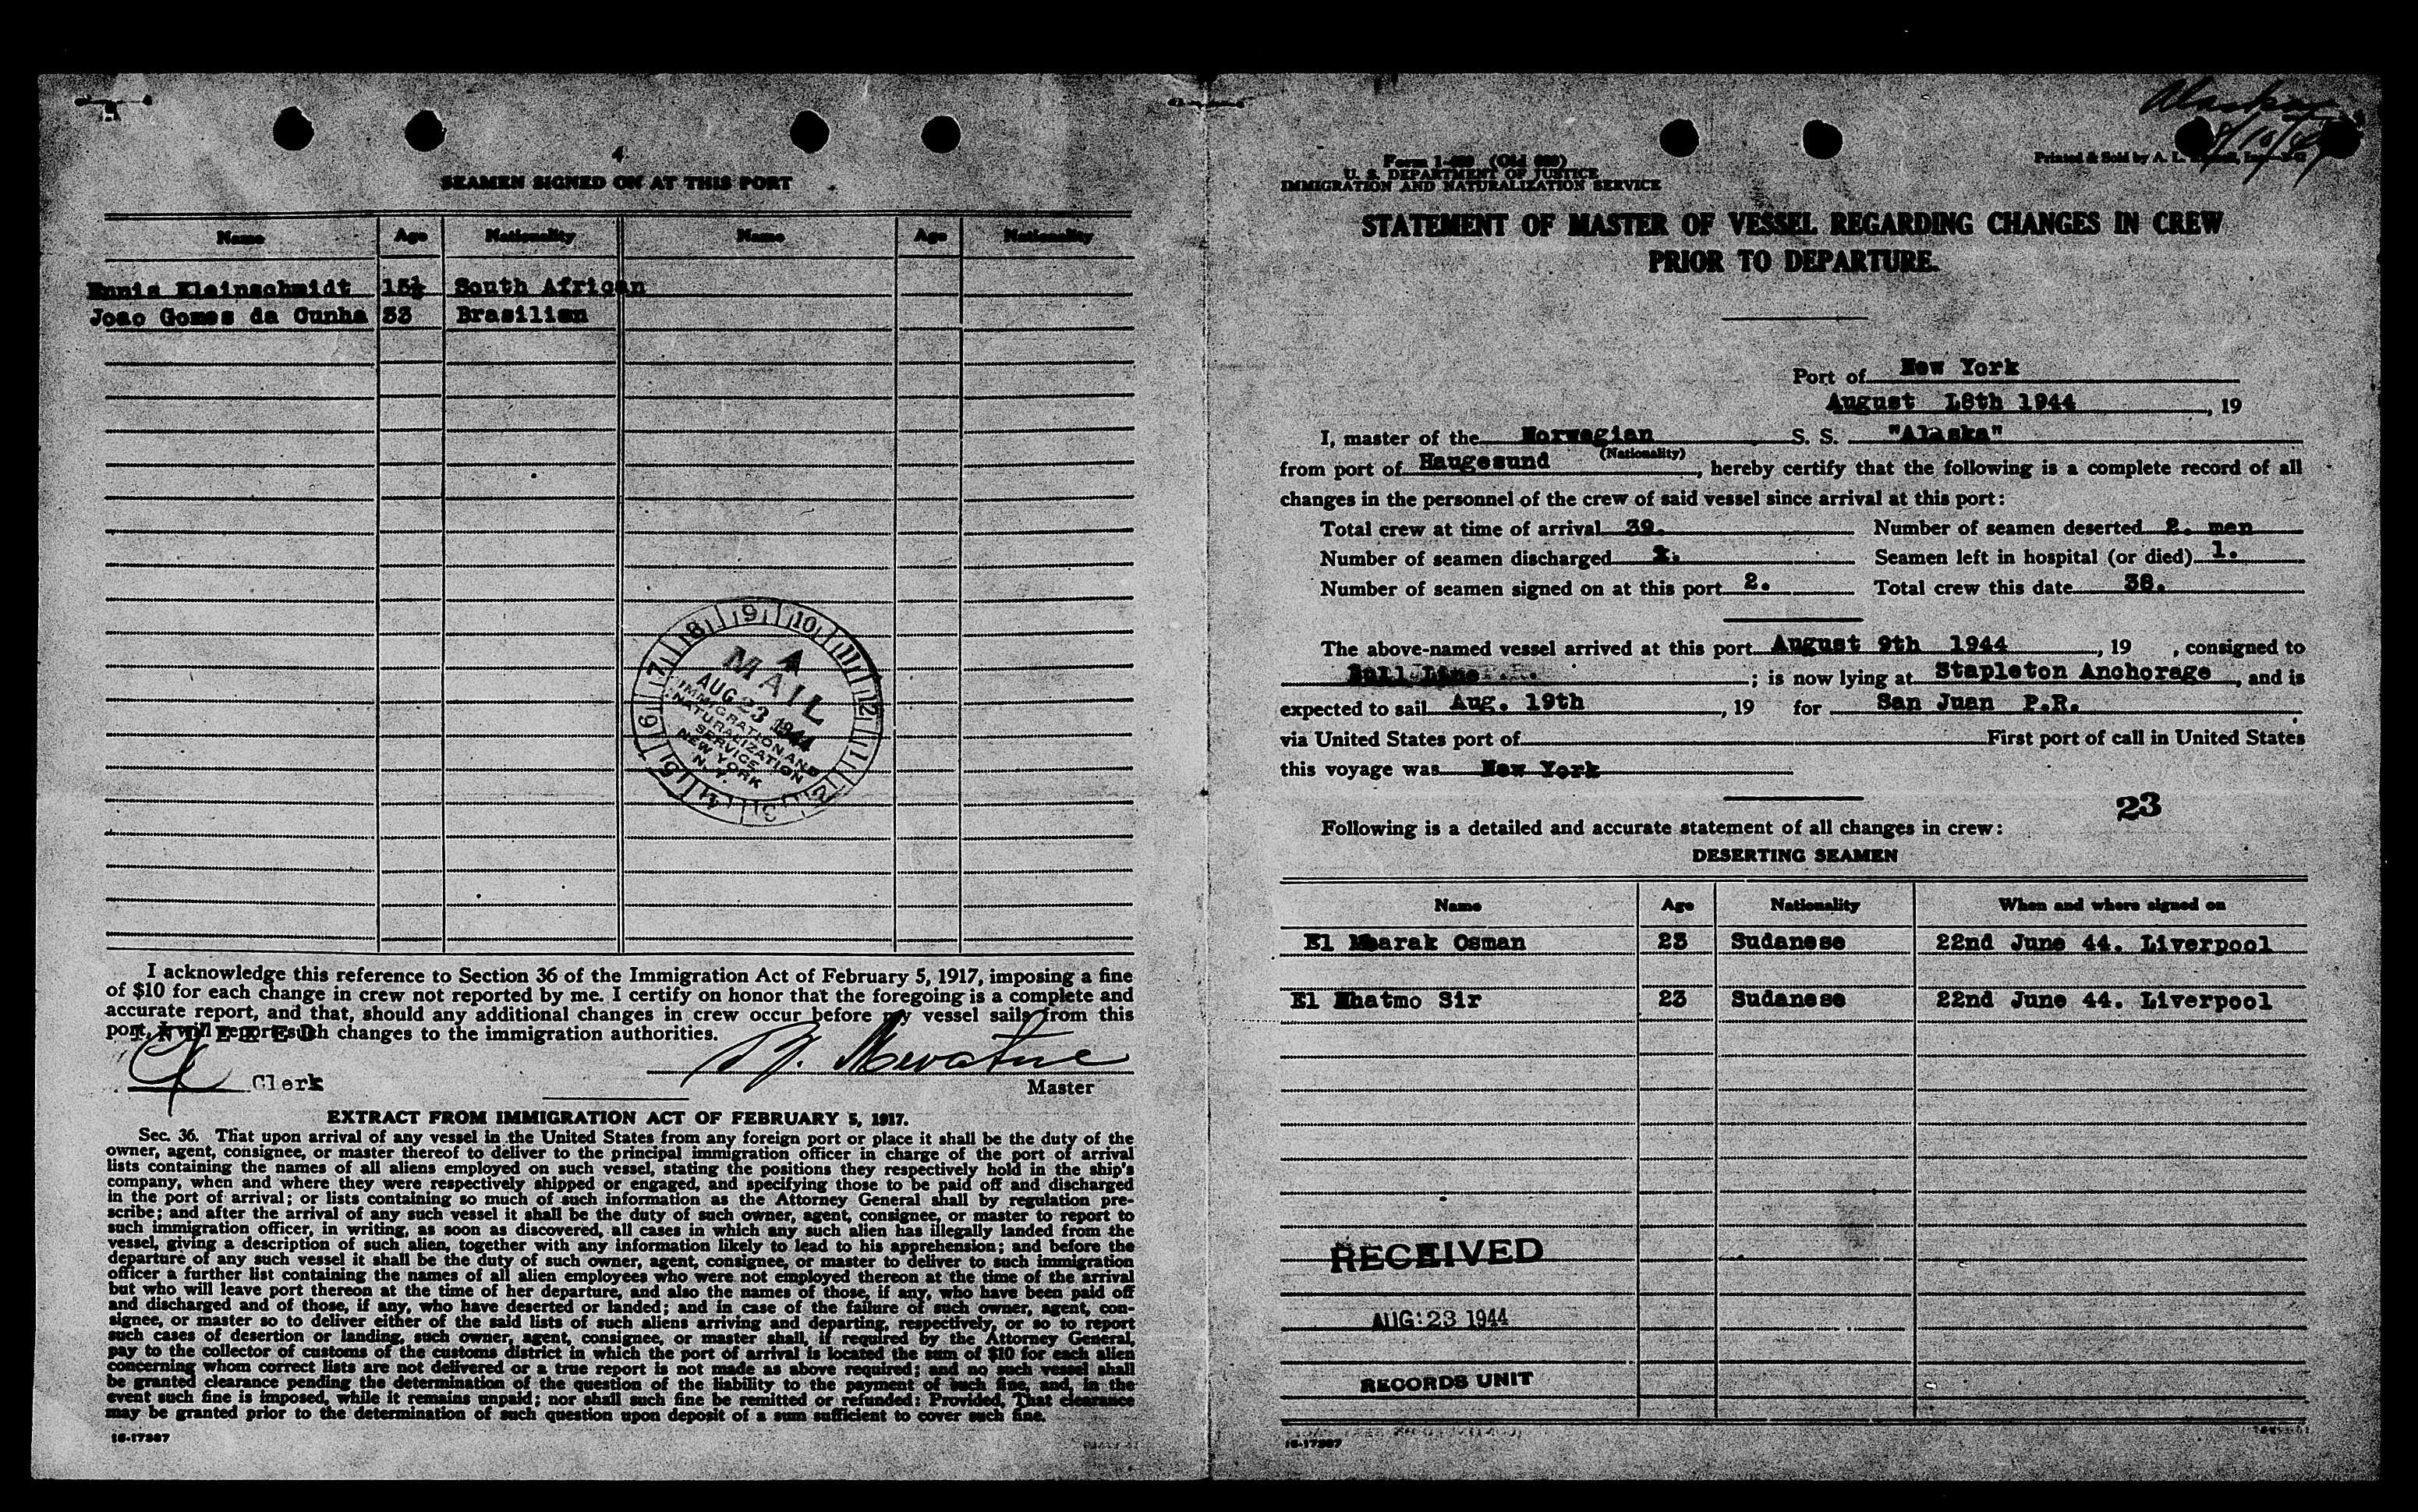 4
SEAMEN SIGNED ON AT THIS PORT
Name Age Nationality Name Age Nationality
Ennis Kleinschmidt 15½ South African
Joao Gomes da Cunha 33 Brasilian
A
MAIL
AUG 23 1944
IMMIGRATION AND
NATURALIZATION
SERVICE
NEW YORK
N. Y.
I acknowledge this reference to Section 36 of the Immigration Act of February 5, 1917, imposing a fine
of $10 for each change in crew not reported by me. I certify on honor that the foregoing is a complete and
accurate report, and that, should any additional changes in crew occur before my vessel sails from this
port, I will report such changes to the immigration authorities.
Clerk
Master
EXTRACT FROM IMMIGRATION ACT OF FEBRUARY 5, 1917.
Sec. 36. That upon arrival of any vessel in the United States from any foreign port or place it shall be the duty of the
owner, agent, consignee, or master thereof to deliver to the principal immigration officer in charge of the port of arrival
lists containing the names of all aliens employed on such vessel, stating the positions they respectively hold in the ship's
company, when and where they were respectively shipped or engaged, and specifying those to be paid off and discharged
in the port of arrival; or lists containing so much of such information as the Attorney General shall by regulation pre-
scribe; and after the arrival of any such vessel it shall be the duty of such owner, agent, consignee, or master to report to
such immigration officer, in writing, as soon as discovered, all cases in which any such alien has illegally landed from the
vessel, giving a description of such alien, together with any information likely to lead to his apprehension; and before the
departure of any such vessel it shall be the duty of such owner, agent, consignee, or master to deliver to such immigration
officer a further list containing the names of all alien employees who were not employed thereon at the time of the arrival
but who will leave port thereon at the time of her departure, and also the names of those, if any, who have been paid off
and discharged and of those, if any, who have deserted or landed; and in case of the failure of such owner, agent, con-
signee, or master so to deliver either of the said lists of such aliens arriving and departing, respectively, or so to report
such cases of desertion or landing, such owner, agent, consignee, or master shall, if required by the Attorney General,
pay to the collector of customs of the customs district in which the port of arrival is located the sum of $10 for each alien
concerning whom correct lists are not delivered or a true report is not made as above required; and no such vessel shall
be granted clearance pending the determination of the question of the liability to the payment of such fine, and, in the
event such fine is imposed, while it remains unpaid; nor shall such fine be remitted or refunded: Provided, That clearance
may be granted prior to the determination of such question upon deposit of a sum sufficient to cover such fine.
16-17387
Alaska
Printed & Sold by A. L.
U. S. DEPARTMENT OF JUSTICE
IMMIGRATION AND NATURALIZATION SERVICE
STATEMENT OF MASTER OF VESSEL REGARDING CHANGES IN CREW
PRIOR TO DEPARTURE.
Port of New York
August 18th 1944, 19
I, master of the Norwegian S. S. "Alaska"
(Nationality)
from port of Haugesund, hereby certify that the following is a complete record of all
changes in the personnel of the crew of said vessel since arrival at this port:
Total crew at time of arrival 39. Number of seamen deserted 2. men
Number of seamen discharged Seamen left in hospital (or died) 1.
Number of seamen signed on at this port 2. Total crew this date 38.
The above-named vessel arrived at this port August 9th 1944, 19 , consigned to
Bull Line ; is now lying at Stapleton Anchorage, and is
expected to sail Aug. 19th, 19 for San Juan P.R.
via United States port of First port of call in United States
this voyage was New York
23
Following is a detailed and accurate statement of all changes in crew:
DESERTING SEAMEN
Name Age Nationality When and where signed on
El Mbarak Osman 23 Sudanese 22nd June 44. Liverpool
El Khatmo Sir 23 Sudanese 22nd June 44. Liverpool
RECEIVED
AUG 23 1944
RECORDS UNIT
16-17387